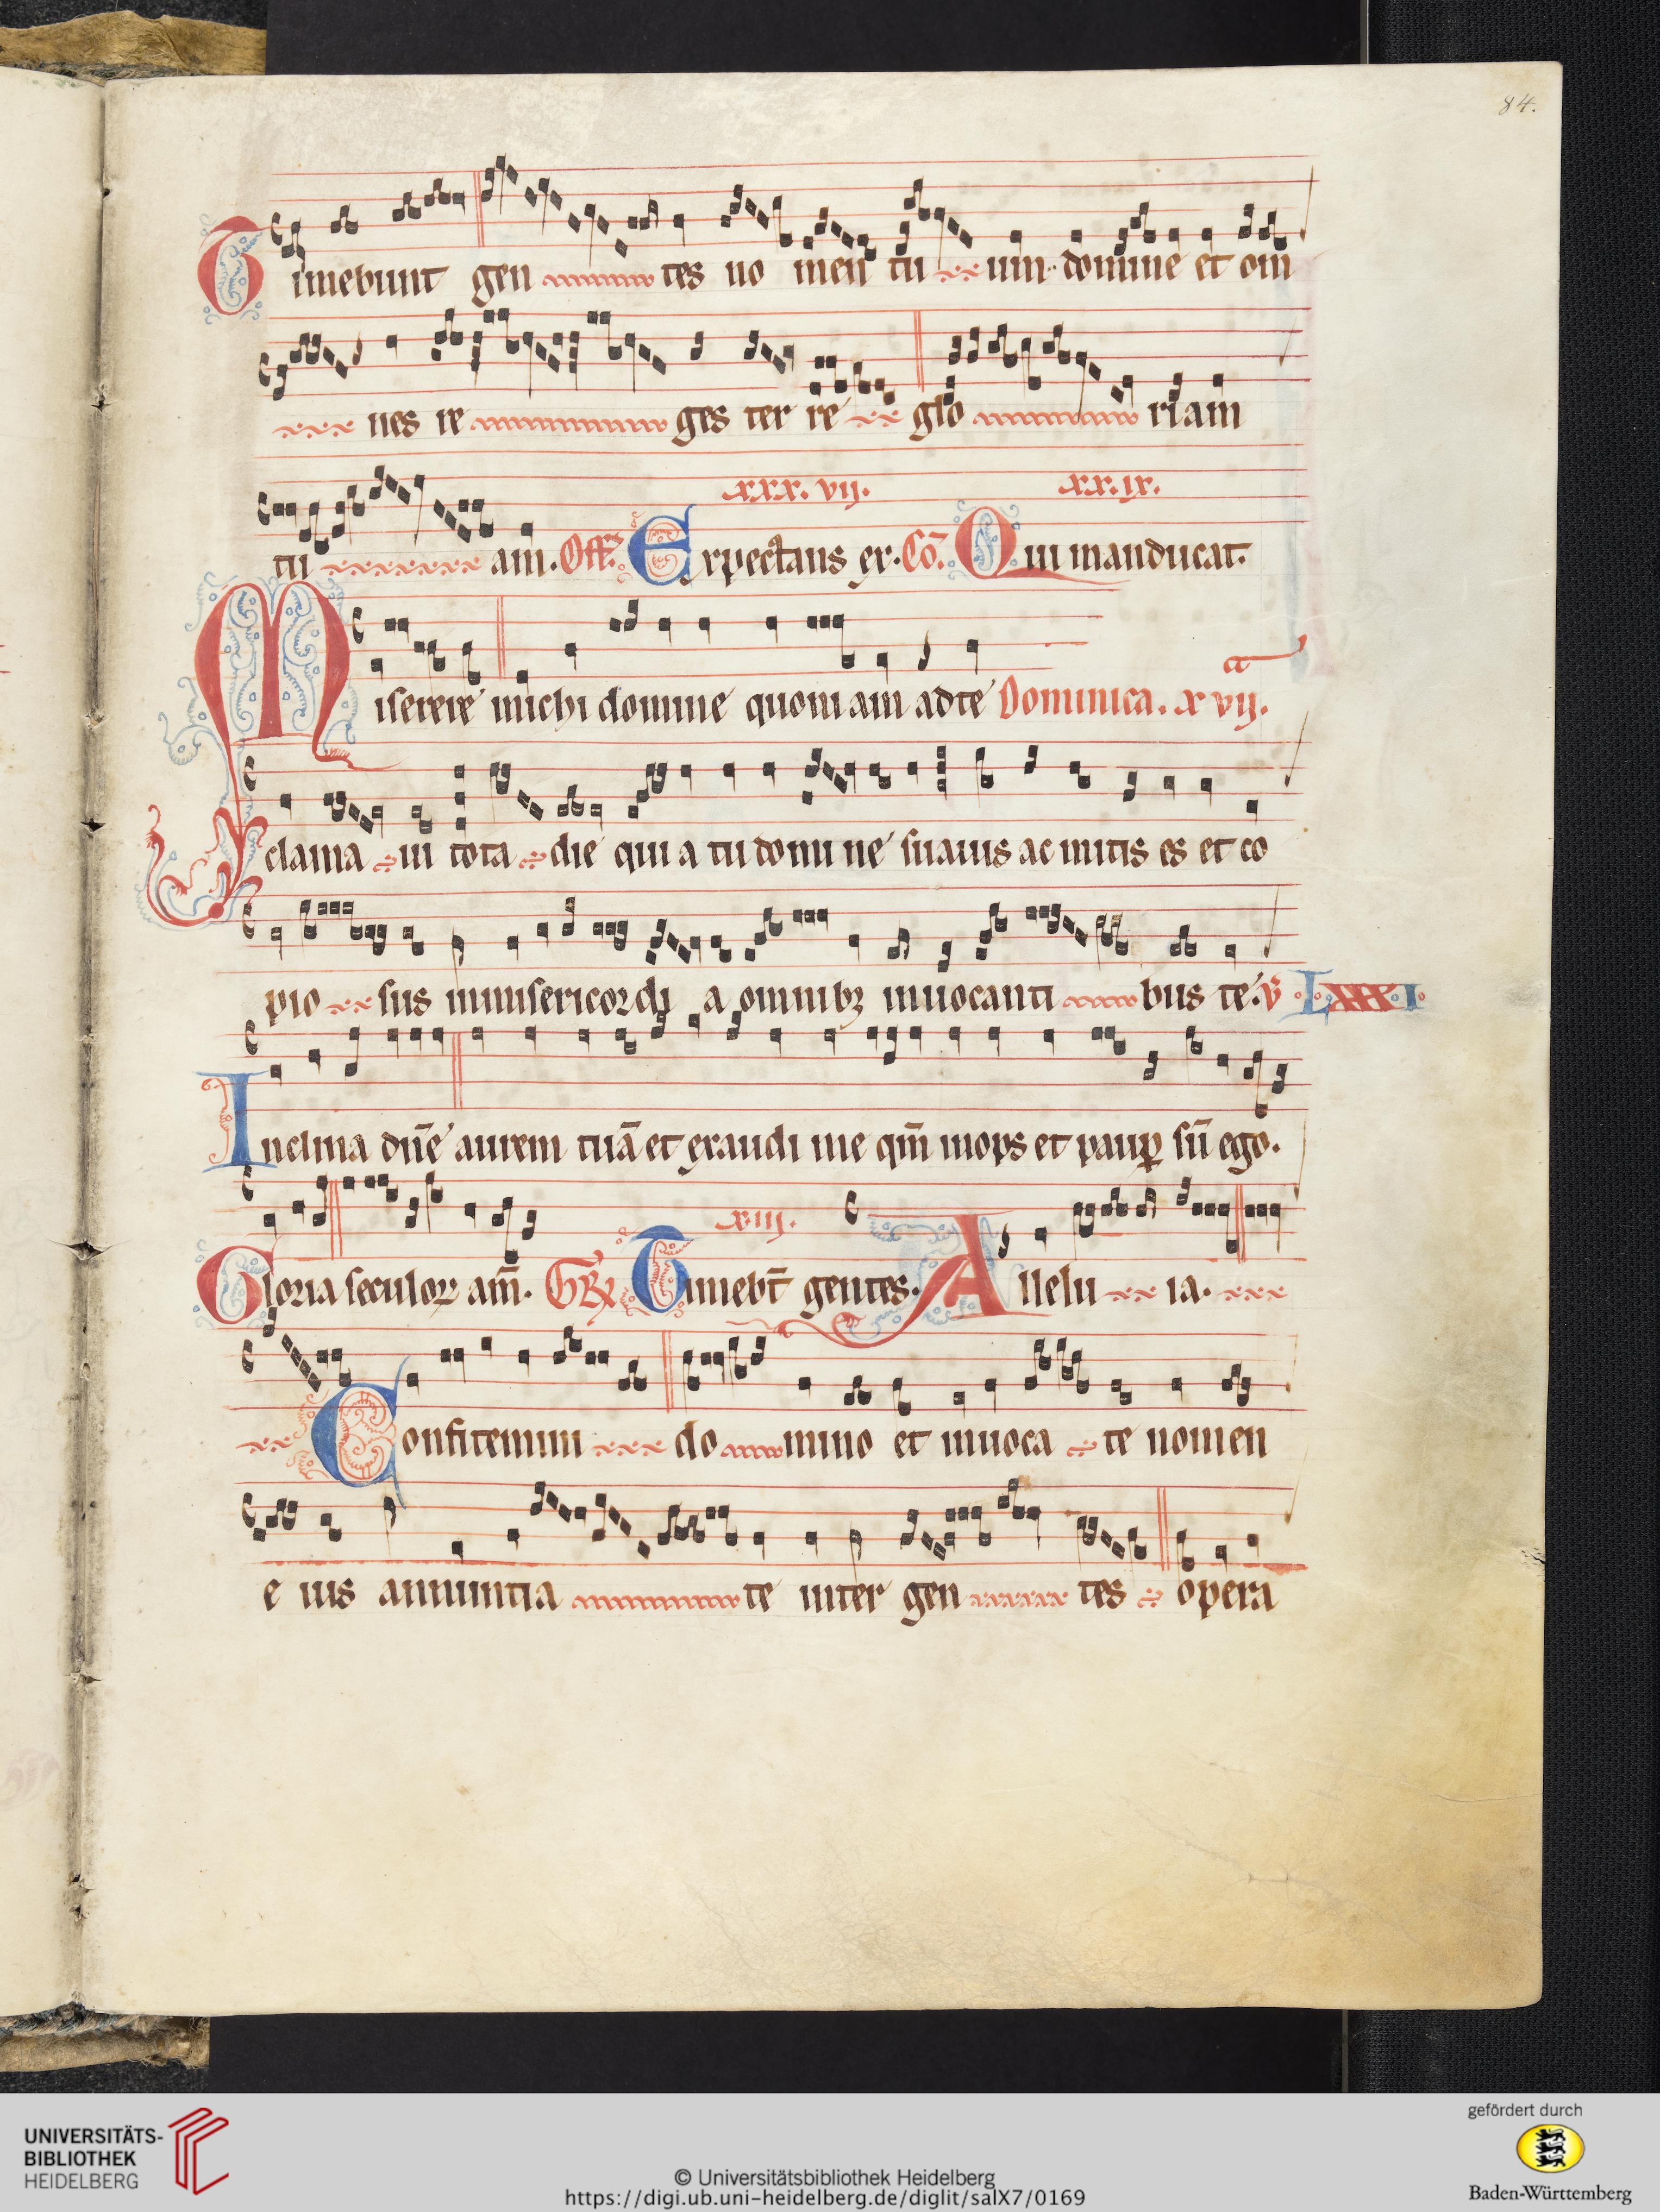 84.
Timebunt gen tes no men tu um domine et om
nes re ges ter re glo riam
xxx. vij. xx. ix.
tu am. Off. Expectans ex. Co. Qui manducat.
a
Miserere michi domine quoniam ad te Dominica. xvij.
clama ui tota die qui a tu domi ne suauis ac mitis es et co
pio sus in misericordi a omnibꝫ inuocanti bus te. V LXXXI
Inclina dn̄e aurem tuā et exaudi me qm̄ inops et paup̲ sū ego.
xiii.
Gloria seculoꝝ am̄. GR Timebt̄ gentes. Allelu ia.
Confitemini do mino et inuoca te nomen
e ius annuntia te inter gen tes opera
UNIVERSITÄTS-
BIBLIOTHEK
HEIDELBERG
© Universitätsbibliothek Heidelberg
https://digi.ub.uni-heidelberg.de/diglit/salX7/0169
gefördert durch
Baden-Württemberg